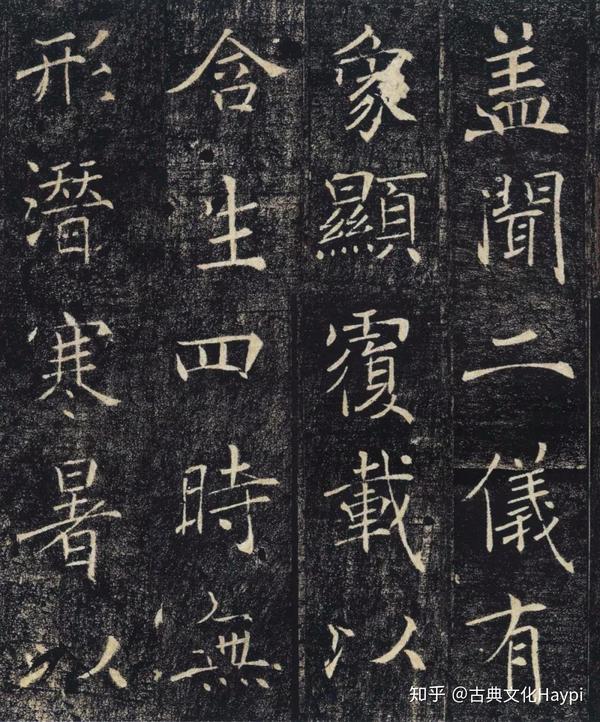 盖聞二儀有
象顯覆載以
含生四時無
形潛寒暑以
知乎 @古典文化Haypi